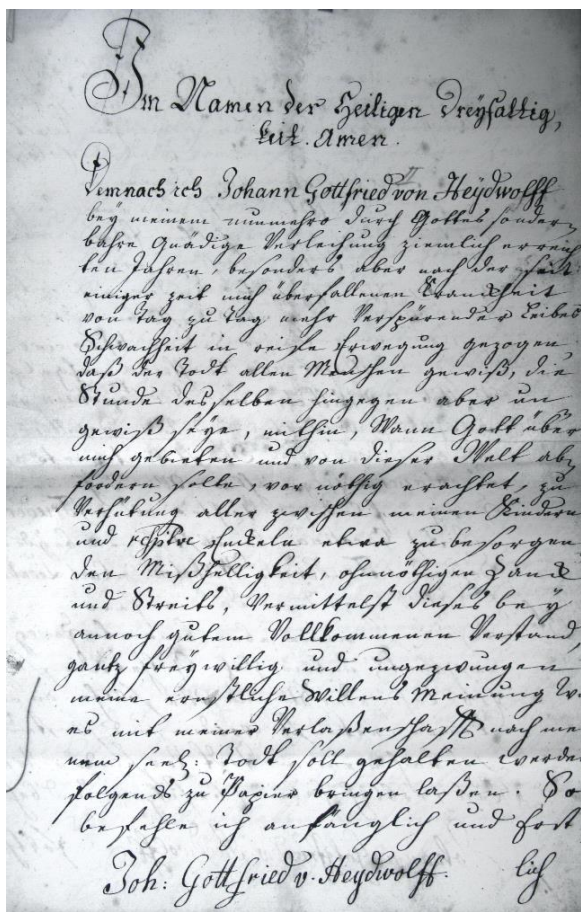 Im Namen der Heiligen Dreyfaltig,
keit. Amen.
Demnach ich Johann Gottfried von Heydwolff
bey meinem nunmehro durch Gottes sonder,
bahre Gnädige Verleihung ziemlich erreich
ten Jahren, besonders aber nach der seit
einiger zeit mich überfallenen Kranckheit
von Tag zu Tag mehr Verspürender Leibes
Schwachheit in reife Erwegung gezogen
daß der Todt allen Menschen gewiß, die
Stunde desselben hingegen aber un
gewiß seye, mithin, Wann Gott über
mich gebieten und von dieser Welt ab,
fordern solte, vor nöthig erachtet, zu
Verhütung aller zwischen meinen Kindern
und respve Enckeln etwa zu besorgen
den Mißhelligkeit, ohnnöthigen Zanck
und Streits, Vermittelst dieses bey
annoch gutem Vollkommenen Verstand,
gantz freywillig und ungezwungen
meine ernstliche Willens Meinung W
es mit meiner Verlaßenschafft nach me
nem seel: Todt soll gehalten werde
folgends zu Papier bringen laßen. So
befehle ich anfänglich und Erst
Joh: Gottfried v. Heydwolff. lich